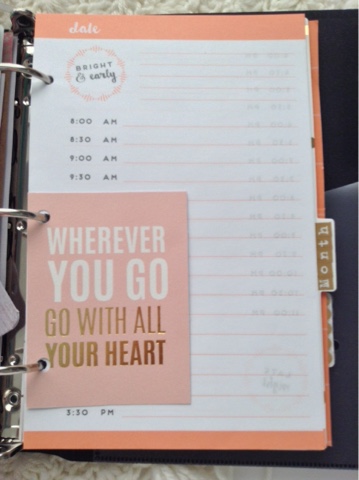 date
BRIGHT
& early
8:00 AM
8:30 AM
9:00 AM
9:30 AM
WHEREVER
YOU GO
GO WITH ALL
YOUR HEART
3:30 PM
Month